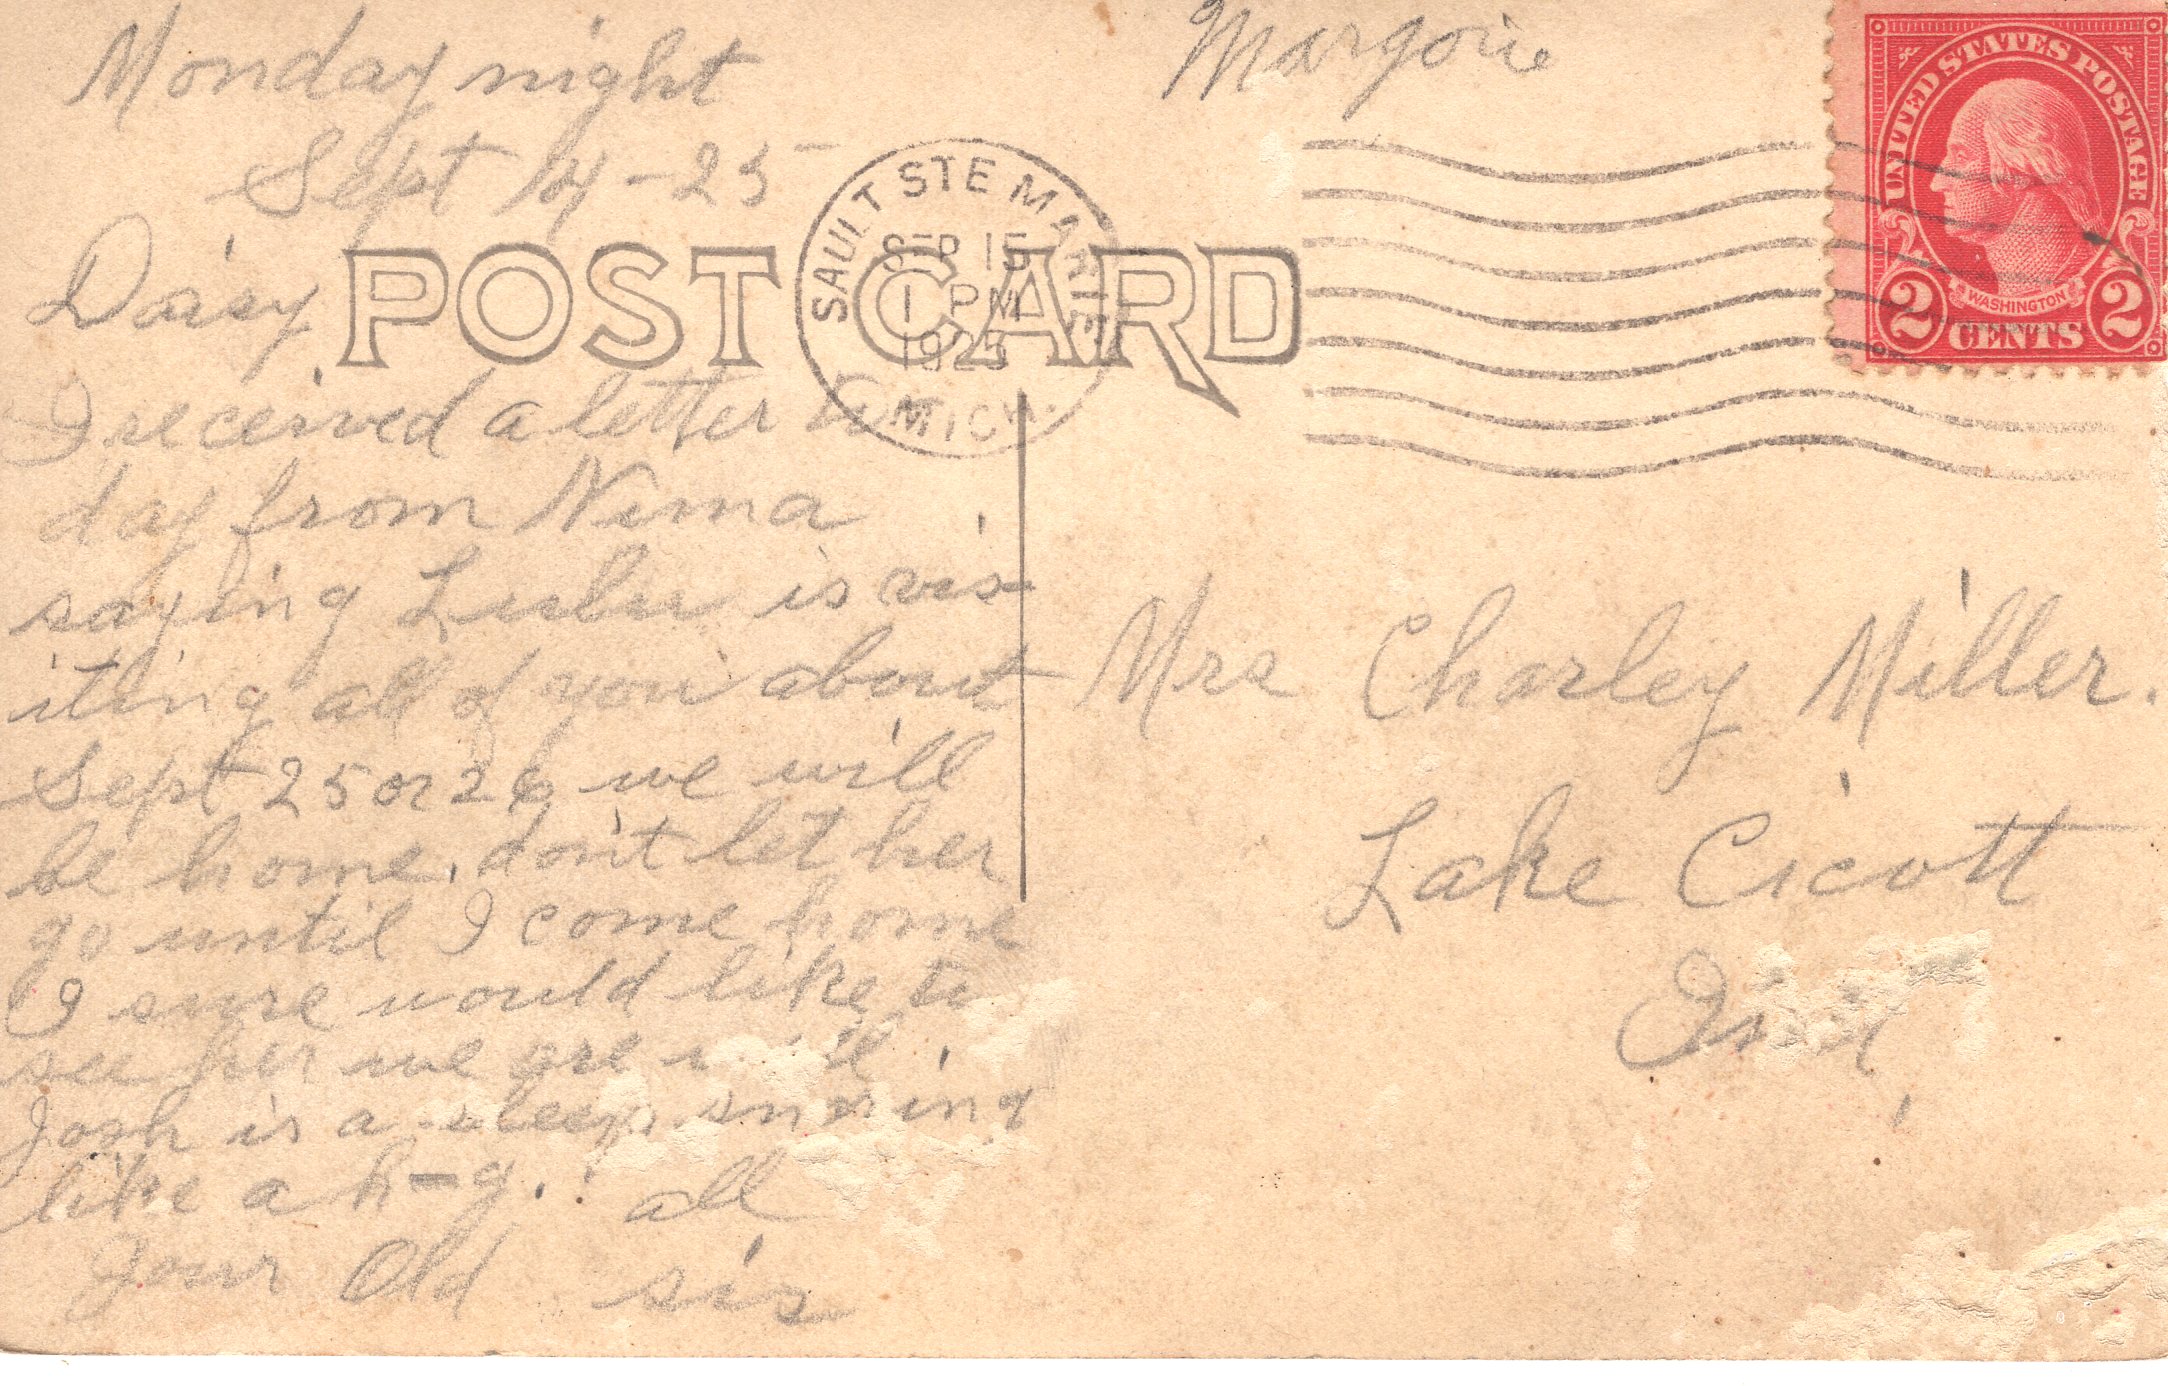 Monday night
Sept 14-25
Margorie
UNITED STATES POSTAGE
WASHINGTON
2 CENTS 2
SAULT STE MARIE
SEP 15
1 PM
1925
MICH.
POST CARD
Daisy
I received a letter to
day from Nima
saying Lulu is vis
iting all of you about
Sept 25 or 26 we will
be home. don't let her
go until I come home
I sure would like to
see her we are
Josh is a sleep. snoring
like a h-g. all
your Old sis
Mrs Charley Miller.
Lake Cicott